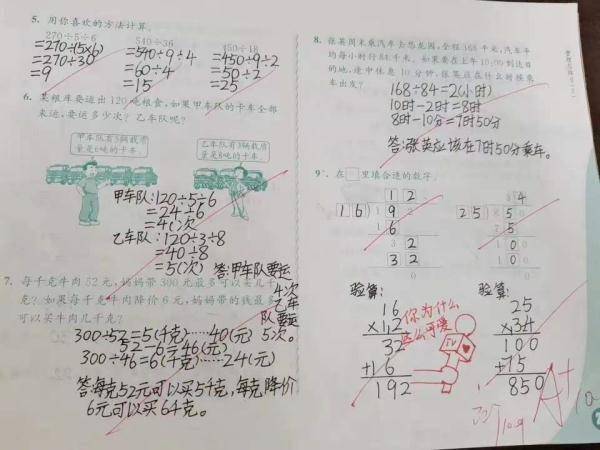 5. 用你喜欢的方法计算。
270÷5÷6
540÷36
450÷18
=270÷(5×6)
=270÷30
=9
=540÷9÷4
=60÷4
=15
=450÷9÷2
=50÷2
=25
6. 某粮库要运出120吨粮食,如果甲车队的卡车全部
来运,要运多少次?乙车队呢?
甲车队有5辆载质
量是6吨的卡车。
乙车队有3辆载质
量是8吨的卡车。
甲车队:120÷5÷6
=24÷6
=4(次)
乙车队:120÷3÷8
=40÷8
=5(次)
答:甲车队要运
4次
乙车
队要运
5次。
7. 每千克牛肉52元,妈妈带300元最多可以买几千
克?如果每千克牛肉降价6元,妈妈带的钱最多
可以买牛肉几千克?
300÷52=5(千克)……40(元)
52-6=46(元)
300÷46=6(千克)……24(元)
答:每克52元可以买5千克,每克降价
6元可以买6千克。
8. 张英周末乘汽车去恐龙园,全程168千米,汽车平
均每小时行84千米。如果要在上午10:00到达目
的地,途中休息10分钟,张英应在什么时候乘
车出发?
168÷84=2(小时)
10时-2时=8时
8时-10分=7时50分
答:张英应该在7时50分乘车。
9. 在□里填合适的数字。
1 2
16 1 9 2
1 6
3 2
3 2
0
3 4
25 8 5 0
7 5
1 0 0
1 0 0
0
验算:
16
×12
32
+16
192
验算:
25
×34
100
+75
850
你为什么
这么可爱
A+